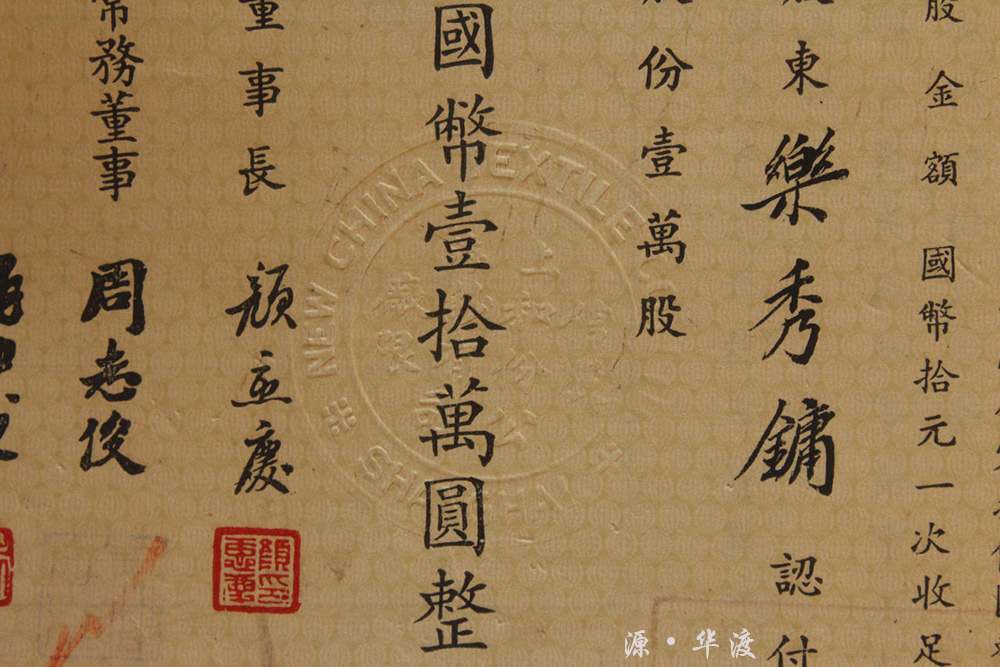 股金額 國幣拾元一次收足
股東 樂秀鏞 認付
份壹萬股
國幣壹拾萬圓整
董事長 顏惠慶
常務董事 周志俊
NEW CHINA TEXTILE
SHANGHAI
顏印惠慶
源·华渡